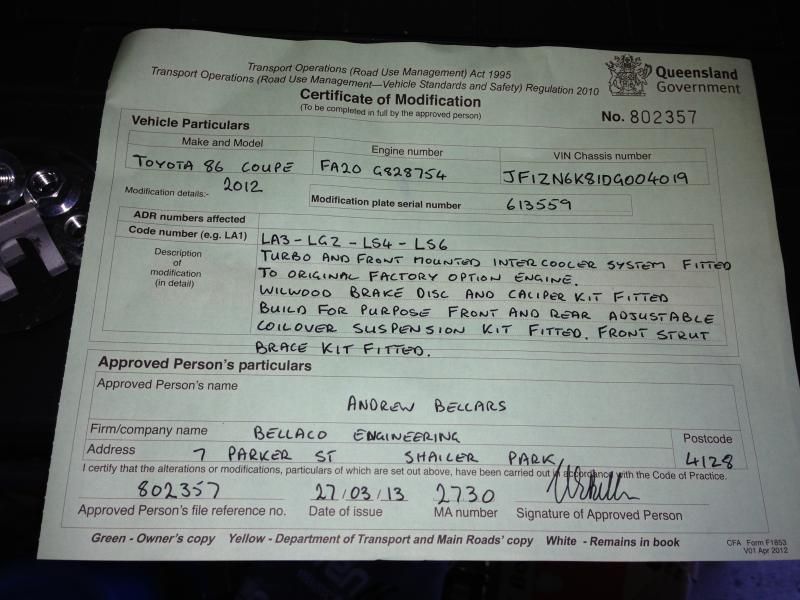 Transport Operations (Road Use Management) Act 1995
Transport Operations (Road Use Management—Vehicle Standards and Safety) Regulation 2010
Queensland
Government
Certificate of Modification
(To be completed in full by the approved person)
No. 802357
Vehicle Particulars
Make and Model Engine number VIN Chassis number
TOYOTA 86 COUPE FA20 G828754 JF1ZN6K81DG004019
2012
Modification details:- Modification plate serial number 613559
ADR numbers affected
Code number (e.g. LA1) LA3-LG2-LS4-LS6
Description
of
modification
(in detail)
TURBO AND FRONT MOUNTED INTERCOOLER SYSTEM FITTED
TO ORIGINAL FACTORY OPTION ENGINE.
WILWOOD BRAKE DISC AND CALIPER KIT FITTED
BUILD FOR PURPOSE FRONT AND REAR ADJUSTABLE
COILOVER SUSPENSION KIT FITTED. FRONT STRUT
BRACE KIT FITTED.
Approved Person's particulars
Approved Person's name
ANDREW BELLARS
Firm/company name BELLACO ENGINEERING Postcode
Address 7 PARKER ST SHAILER PARK 4128
I certify that the alterations or modifications, particulars of which are set out above, have been carried out in accordance with the Code of Practice.
802357 27/03/13 2730
Approved Person's file reference no. Date of issue MA number Signature of Approved Person
Green - Owner's copy Yellow - Department of Transport and Main Roads' copy White - Remains in book
CFA Form F1853
V01 Apr 2012